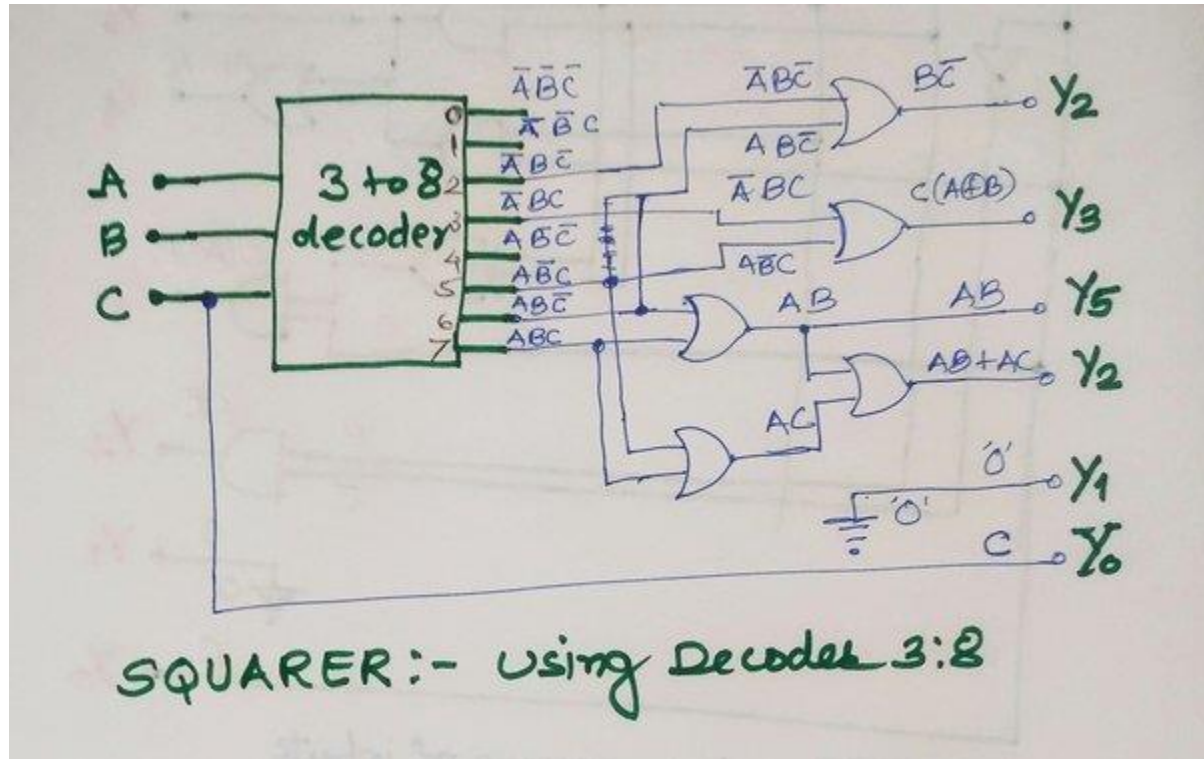 A
B
C
3 to 8
decoder
0
1
2
3
4
5
6
7
A̅B̅C̅
A̅B̅C
A̅BC̅
A̅BC
AB̅C̅
AB̅C
ABC̅
ABC
A̅BC̅
ABC̅
BC̅
Y2
A̅BC
AB̅C
C(A⊕B)
Y3
AB
AB
Y5
AC
AB+AC
Y2
'0'
'0'
Y1
C
Y0
SQUARER:- Using Decoder 3:8